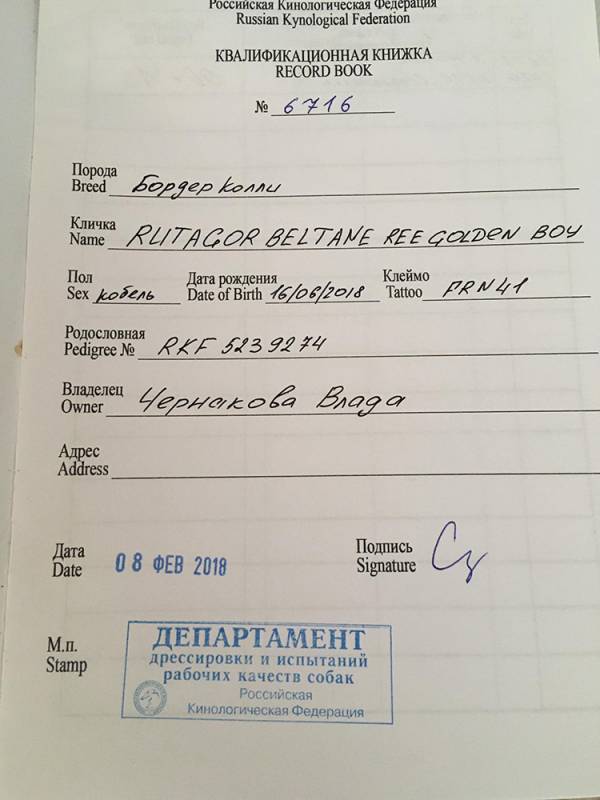 Российская Кинологическая Федерация
Russian Kynological Federation
КВАЛИФИКАЦИОННАЯ КНИЖКА
RECORD BOOK
№ 6716
Порода
Breed Бордер колли
Кличка
Name RUTAGOR BELTANE REE GOLDEN BOY
Пол Дата рождения Клеймо
Sex кобель Date of Birth 16/06/2018 Tattoo PRN41
Родословная
Pedigree № RKF 5239274
Владелец
Owner Чернакова Влада
Адрес
Address
Дата Подпись
Date 08 ФЕВ 2018 Signature
М.п.
Stamp
ДЕПАРТАМЕНТ
дрессировки и испытаний
рабочих качеств собак
Российская
Кинологическая Федерация